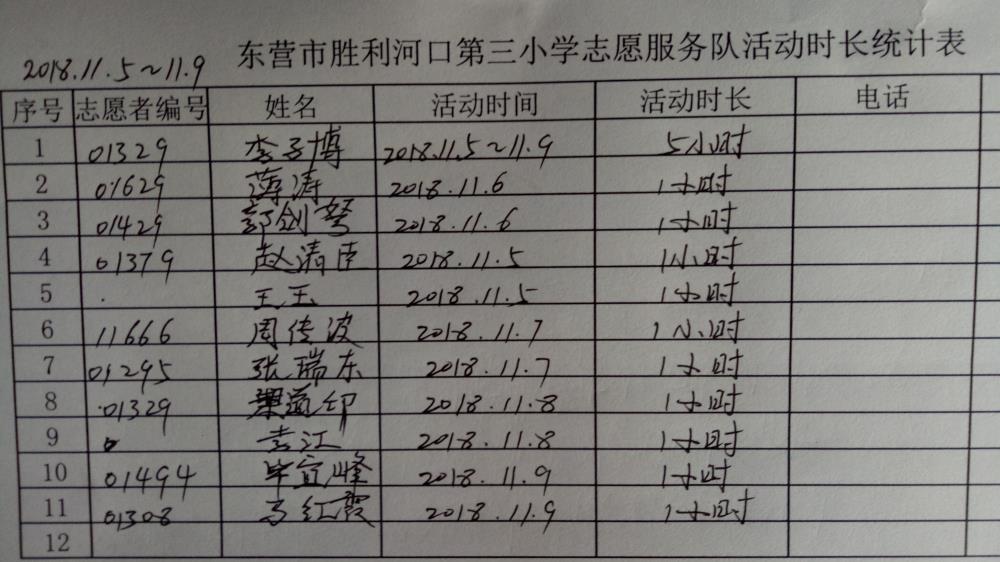 东营市胜利河口第三小学志愿服务队活动时长统计表
2018.11.5~11.9
序号 志愿者编号 姓名 活动时间 活动时长 电话
1 01329 李子博 2018.11.5~11.9 5小时
2 01629 薄涛 2018.11.6 1小时
3 01429 郭剑 2018.11.6 1小时
4 01379 赵清臣 2018.11.5 1小时
5 王玉 2018.11.5 1小时
6 11666 周传波 2018.11.7 1小时
7 01295 张瑞东 2018.11.7 1小时
8 01329 2018.11.8 1小时
9 袁江 2018.11.8 1小时
10 01494 毕宜峰 2018.11.9 1小时
11 01308 马红霞 2018.11.9 1小时
12